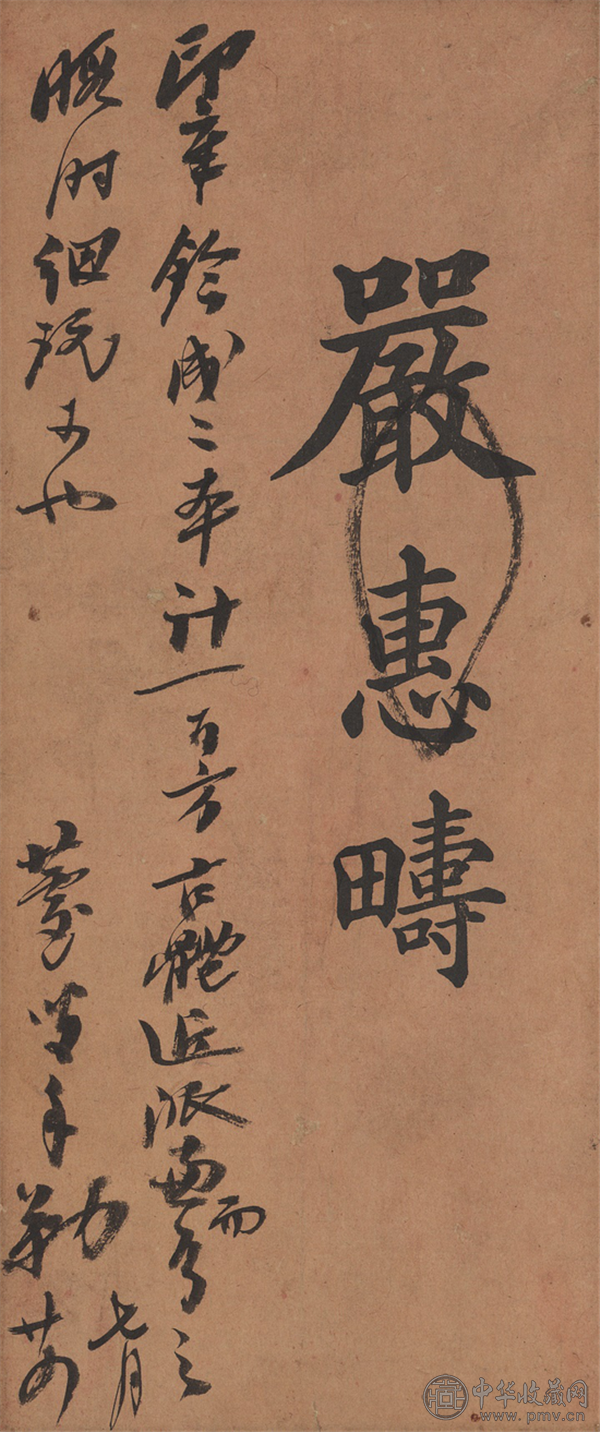 嚴惠疇
印章鈐成二本計一百方古體近派兼而有之
暇時細玩可也
手勒
七月
中华收藏网
www.pmv.cn